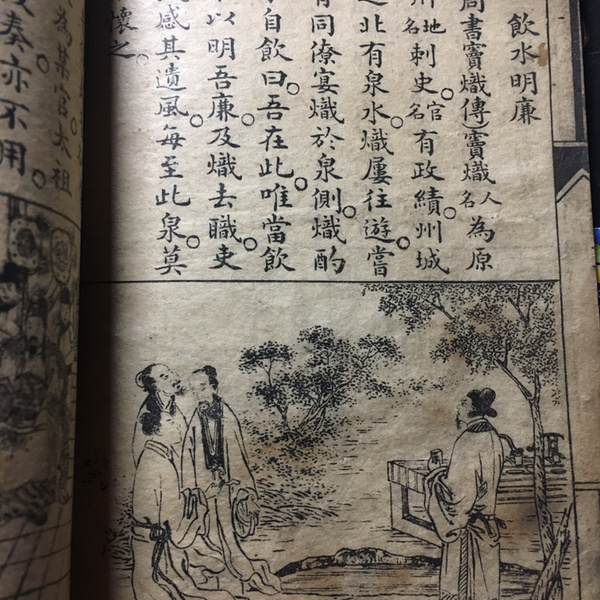 飲水明廉
周書竇熾傳。竇熾人名為原
州地名刺史官名有政績。州城
之北有泉水。熾屢往遊。嘗
有同僚宴熾於泉側。熾酌
自飲曰。吾在此。唯當飲
以明吾廉。及熾去職。吏
感其遺風。每至此泉。莫
懷之。
為某官。太祖
奏亦不用。